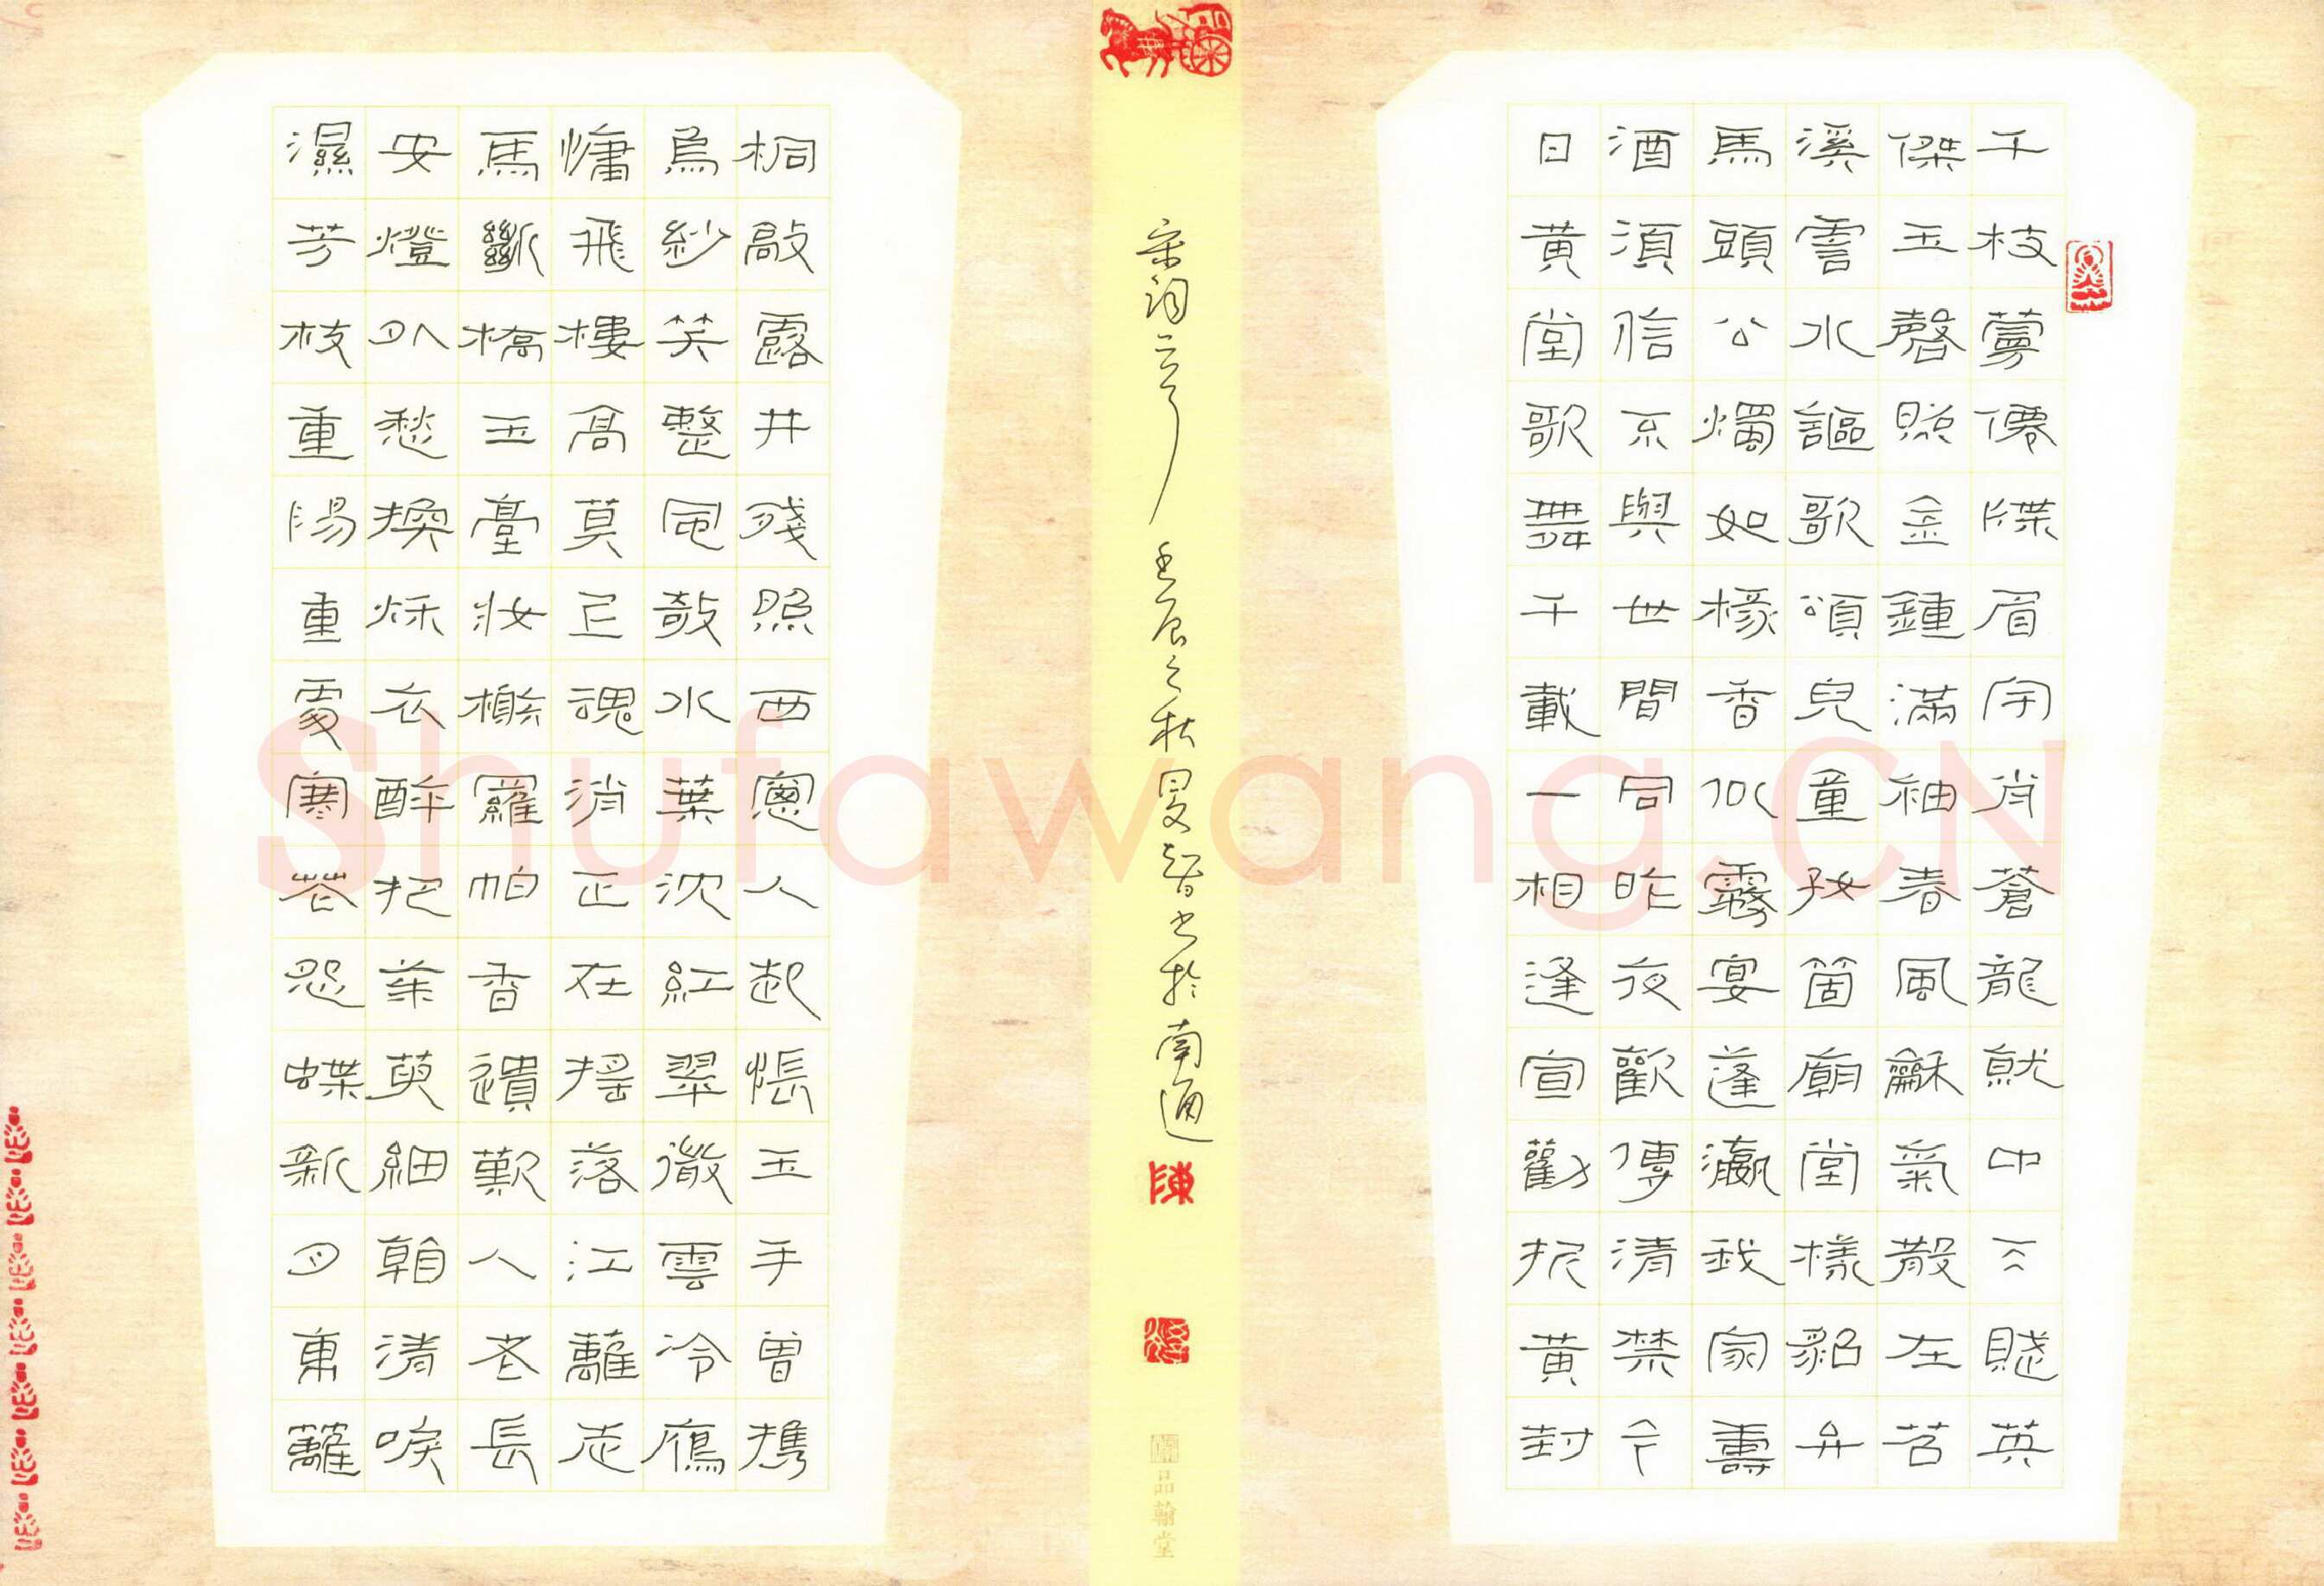 千枝蕚僊牒眉宇肖蒼龍就中賤英
傑玉磬照金鍾滿袖春風龢氣散在苕
溪霅水謳歌頌兒童好箇廟堂樣貂弁
馬頭公燭如椽香似霧宴蓬瀛我家壽
酒須信不與世間同昨夜歡傳清禁今
日黃堂歌舞千載一相逢宣勸折黃封
宋詞二首 壬辰之秋旻智書於南通
陳
品翰堂
桐敲露井殘照西窗人起悵玉手曾攜
烏紗笑整風欹水葉沈紅翠微雲冷鴈
慵飛樓高莫上魂消正在搖落江蘺走
馬斷橋玉臺妝榭羅帕香遺歎人老長
安燈外愁換秋衣醉把茱萸細看清唳
濕芳枝重陽重處寒花怨蝶新月東籬
Shufawang.CN